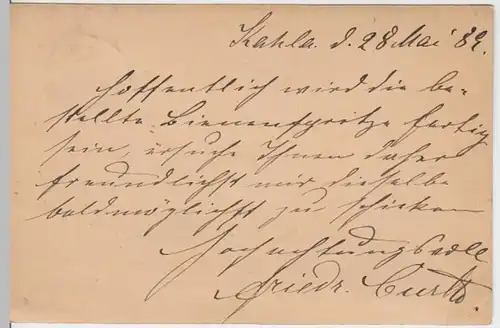 Kahla. d. 28 Mai 82.
Hoffentlich wird die be-
stellte Bienenspritze fertig
sein, ersuche Ihnen daher
freundlichst mir dieselbe
baldmöglichst zu schicken
Hochachtungsvoll
Friedr.